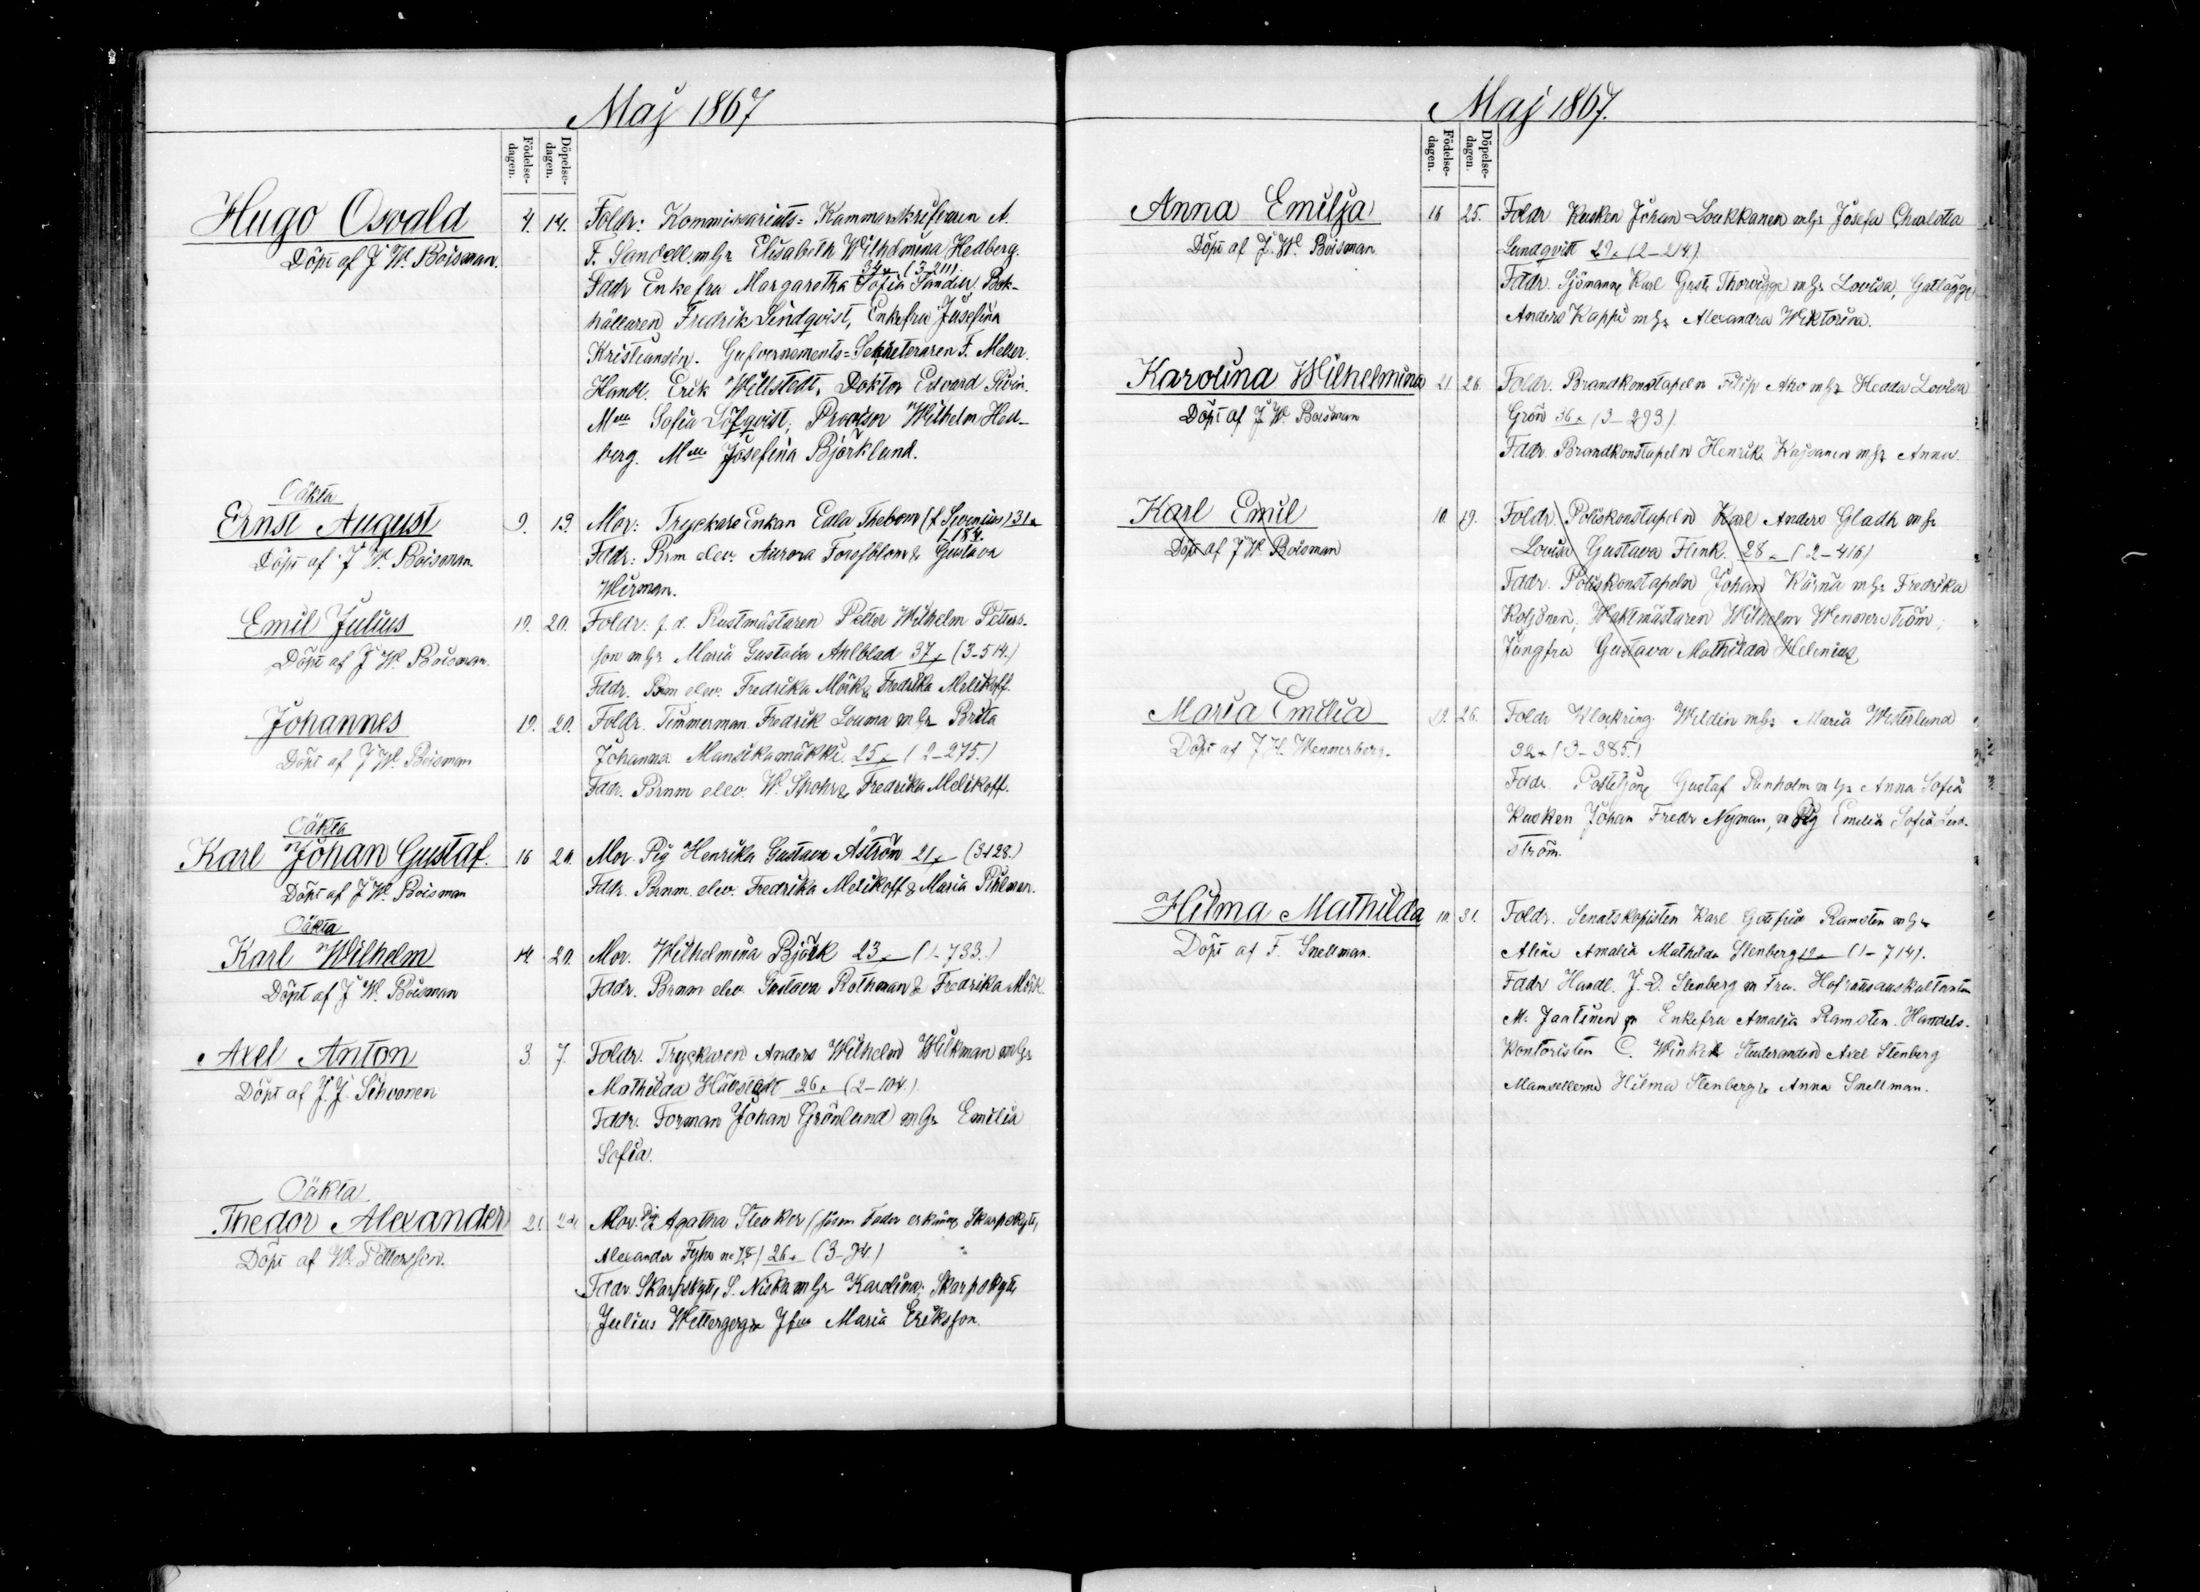 Maj 1867
Födelse-dagen.
Döpelse-dagen.
Hugo Osvald
Döpt af J W. Boisman.
4. 14.
Földr: Kommissariats=Kammarskrifvaren A.
F. Sandell mhr Elisabeth Wilhelmina Hedberg.
34 (3-211).
Fddr Enkefru Margaretha Sofia Sandell, Bok-
hållaren Fredrik Lindqvist, Enkefru Josefina
Gufvernements=Sekreteraren F. Meller.
Handl. Erik Willstedt, Doktor Edvard
Mlle Sofia Löfqvist, Provisor Wilhelm Hed-
berg. Mlle Josefina Björklund.
Oäkta
Ernst August
Döpt af J W. Boisman.
9. 19.
Mor: Tryckare Enkan Edla Thebom (f. ) 31
184.
Fddr: Brm elev. Aurora & Gustava
Wirman.
Emil Julius
Döpt af J W. Boisman.
19. 20.
Földr: f. d. Rustmästaren Petter Wilhelm Petters-
son mhr Maria Gustava Ahlblad 37 (3-514.)
Fddr. Brm elev. Fredrika Mörk & Fredrika Melikoff.
Johannes
Döpt af J W. Boisman
19. 20.
Földr. Timmerman Fredrik Louma mhr Brita
Johanna Mansikamäkki. 25 (2-275.)
Fddr. Brnm elev. W. Spohr & Fredrika Melikoff.
Oäkta
Karl Johan Gustaf.
Döpt af J W. Boisman
16 20.
Mor. Pig Henrika Gustava Åström 21 (3-128.)
Fddr. Brnm. elev. Fredrika Melikoff & Maria Pihlman.
Oäkta
Karl Wilhelm
Döpt af J W. Boisman
14 20.
Mor. Wilhelmina Björk 23 (1-733.)
Fddr. Brnm elev. Gustava Rothman & Fredrika Mörk.
Axel Anton
Döpt af J. J. Sihvonen
3. 7.
Földr. Tryckaren Anders Wilhelm Wilkman mhr
Mathilda 26. (2-104.)
Fddr. Forman Johan Grönlund mhr Emilia
Sofia.
Oäkta
Thedor Alexander
Döpt af W. Pettersson.
21.
Mor. Pig Agatha Stenker (såsom Fader Skarpskytt,
Alexander ) 26. (3-74)
Fddr. Skarpskytt, S. Niska mhr Karolina; Skarpskytt,
Julius Maria Eriksson.
Maj 1867.
Födelse-dagen.
Döpelse-dagen.
Anna Emilja
Döpt af J. W. Boisman
16 25.
Földr Kusken Johan Loukkanen mhr Josefa Charlotta
Lundqvist 29. (2-214).
Fddr. Sjömann Karl Gust. mhr Lovisa,
Anders Kappi mhr Alexandra Wiktorina.
Karolina Wilhelmina
Döpt af J W. Boisman
21 26.
Földr. Brandkonstapeln Filip Aho mhr Hedda Lovisa
Grön 36. (3-293).
Fddr. Brandkonstapeln Henrik mhr Anna.
Karl Emil
Döpt af J W. Boisman
10. 19.
Földr. Poliskonstapeln Karl Anders Gladh mhr
Lovisa Gustava Flink. 28. (2-416)
Fddr. Poliskonstapeln Johan Kärnä mhr Fredrika
Koljonen, Waktmästaren Wilhelm Wennerström,
Jungfru Gustava Mathilda Helenius,
Maria Emilia
Döpt af J H. Wennerberg.
19. 26.
Földr Klockring. Wildén mhr Maria Westerlund
32 (3-385)
Fddr. Gustaf mhr Anna Sofia
Kusken Johan Fredr Nyman, Pig Emilia Sofia
ström.
Hilma Mathilda
Döpt af F. Snellman.
10. 31.
Földr. Senatskopisten Karl Gottfrid Ramsten mhr
Aline Amalia Mathilda Stenberg (1-714).
Fddr Handl. J. D. Stenberg m Fru. Hofrättsauskultanten
M. Jaatinen Enkefru Amalia Ramsten. Handels-
kontoristen C. Winkel Studeranden Axel Stenberg
Mamsellerna Hilma Stenberg & Anna Snellman.